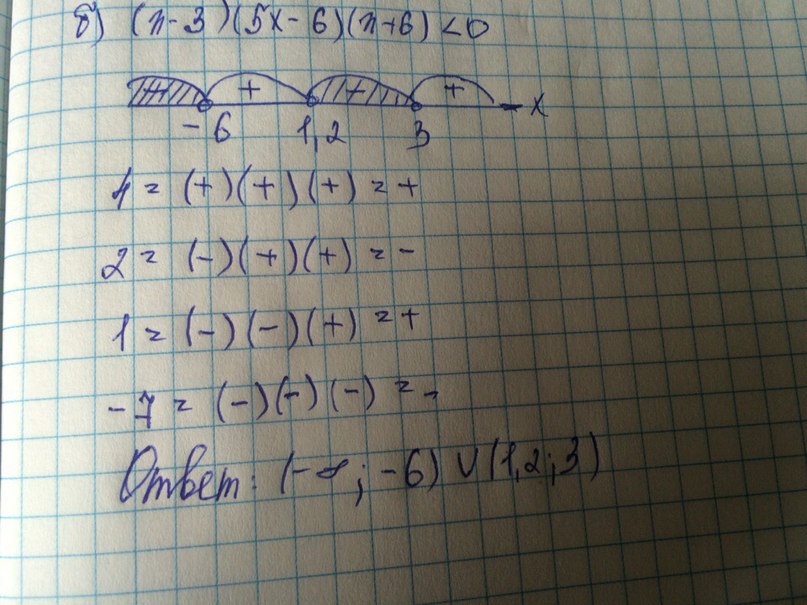 б) (x-3)(5x-6)(x+6) <0
- + - + x
-6 1,2 3
4 = (+)(+)(+) = +
2 = (-)(+)(+) = -
1 = (-)(-)(+) = +
-7 = (-)(-)(-) = -
Ответ: (-∞; -6) ∪ (1,2; 3)